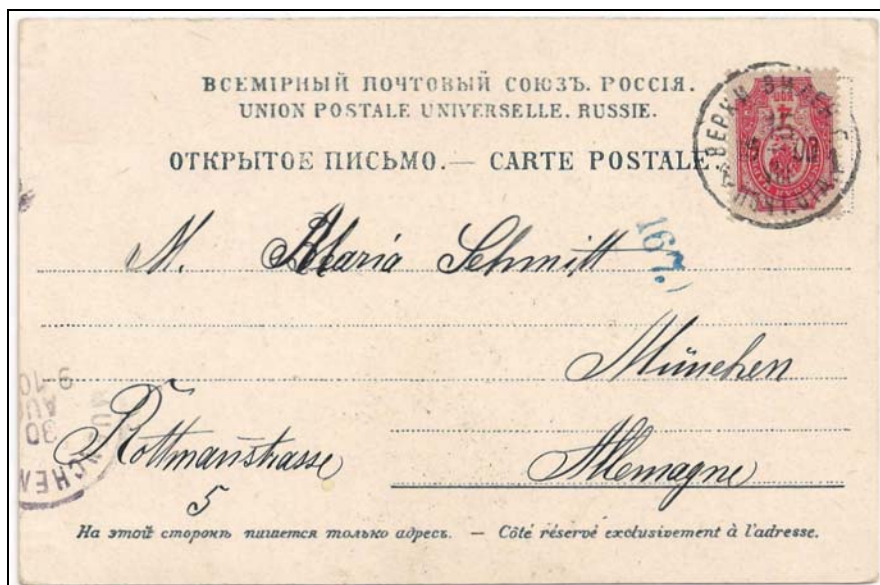 ВСЕМІРНЫЙ ПОЧТОВЫЙ СОЮЗЪ. РОССІЯ.
UNION POSTALE UNIVERSELLE. RUSSIE.
ОТКРЫТОЕ ПИСЬМО. — CARTE POSTALE.
ВЕРКИ ВИЛЕН. Г.
M. Maria Schmitt
167.
München
9-10
AUG
30
MUENCHEN
Rottmanstrasse
5
Allemagne
На этой сторонѣ пишется только адресъ. — Côté réservé exclusivement à l'adresse.